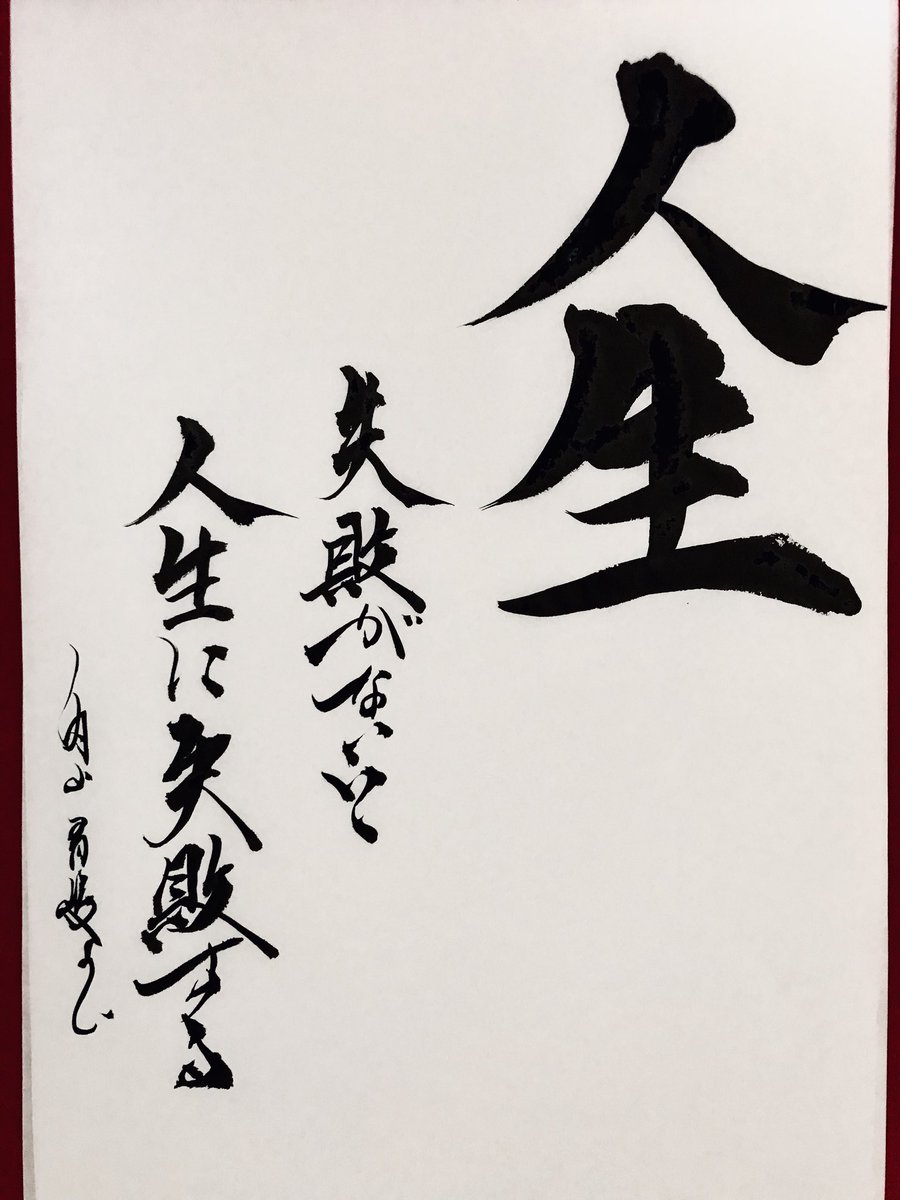 人生
失敗がないと
人生に失敗する